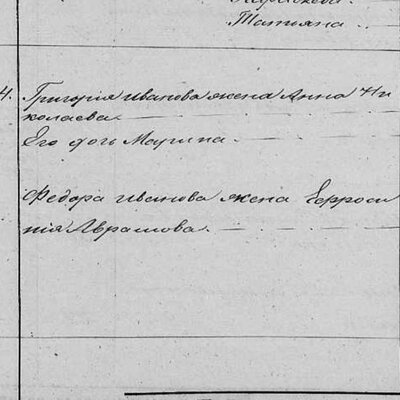 Татьяна
4. Григорія Иванова жена Анна Ни
колаева.
Его дочь Марина.
Федора Иванова жена Ефроси
нія Абрамова.